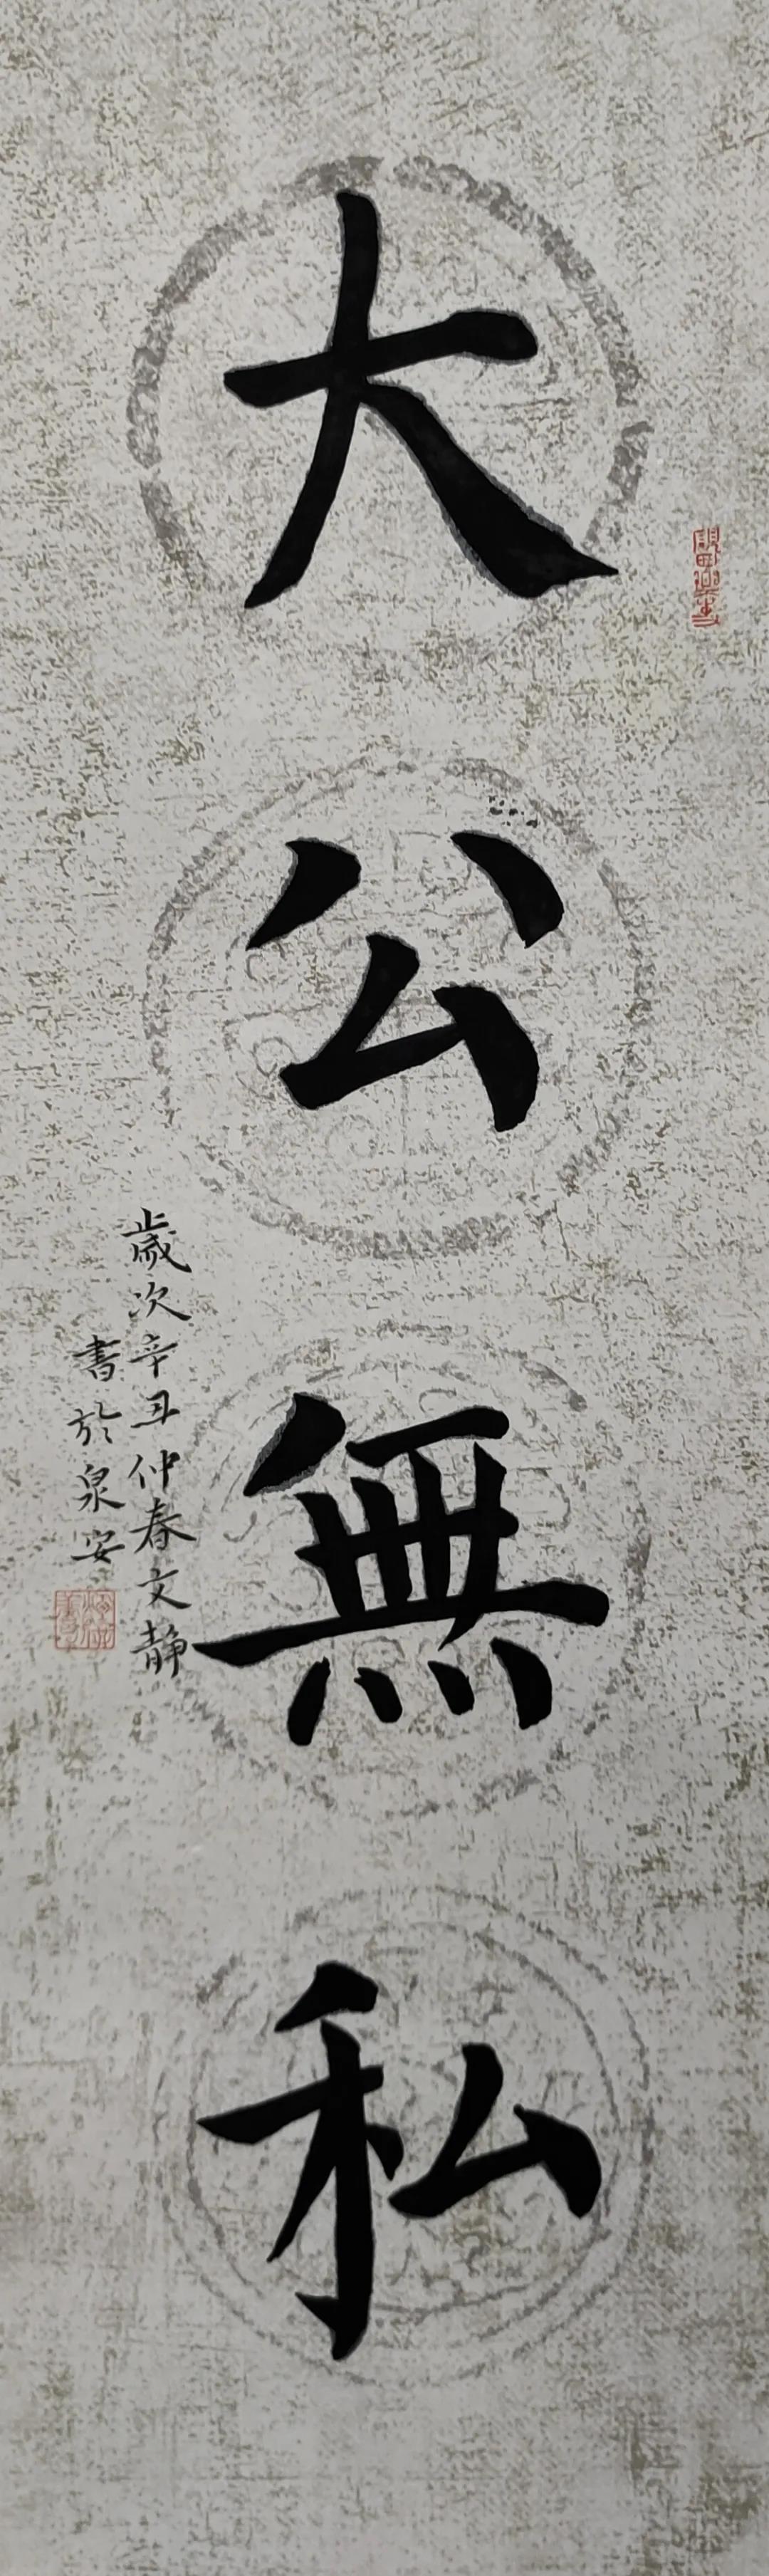 大公無私
歲次辛丑仲春文静
書於泉安